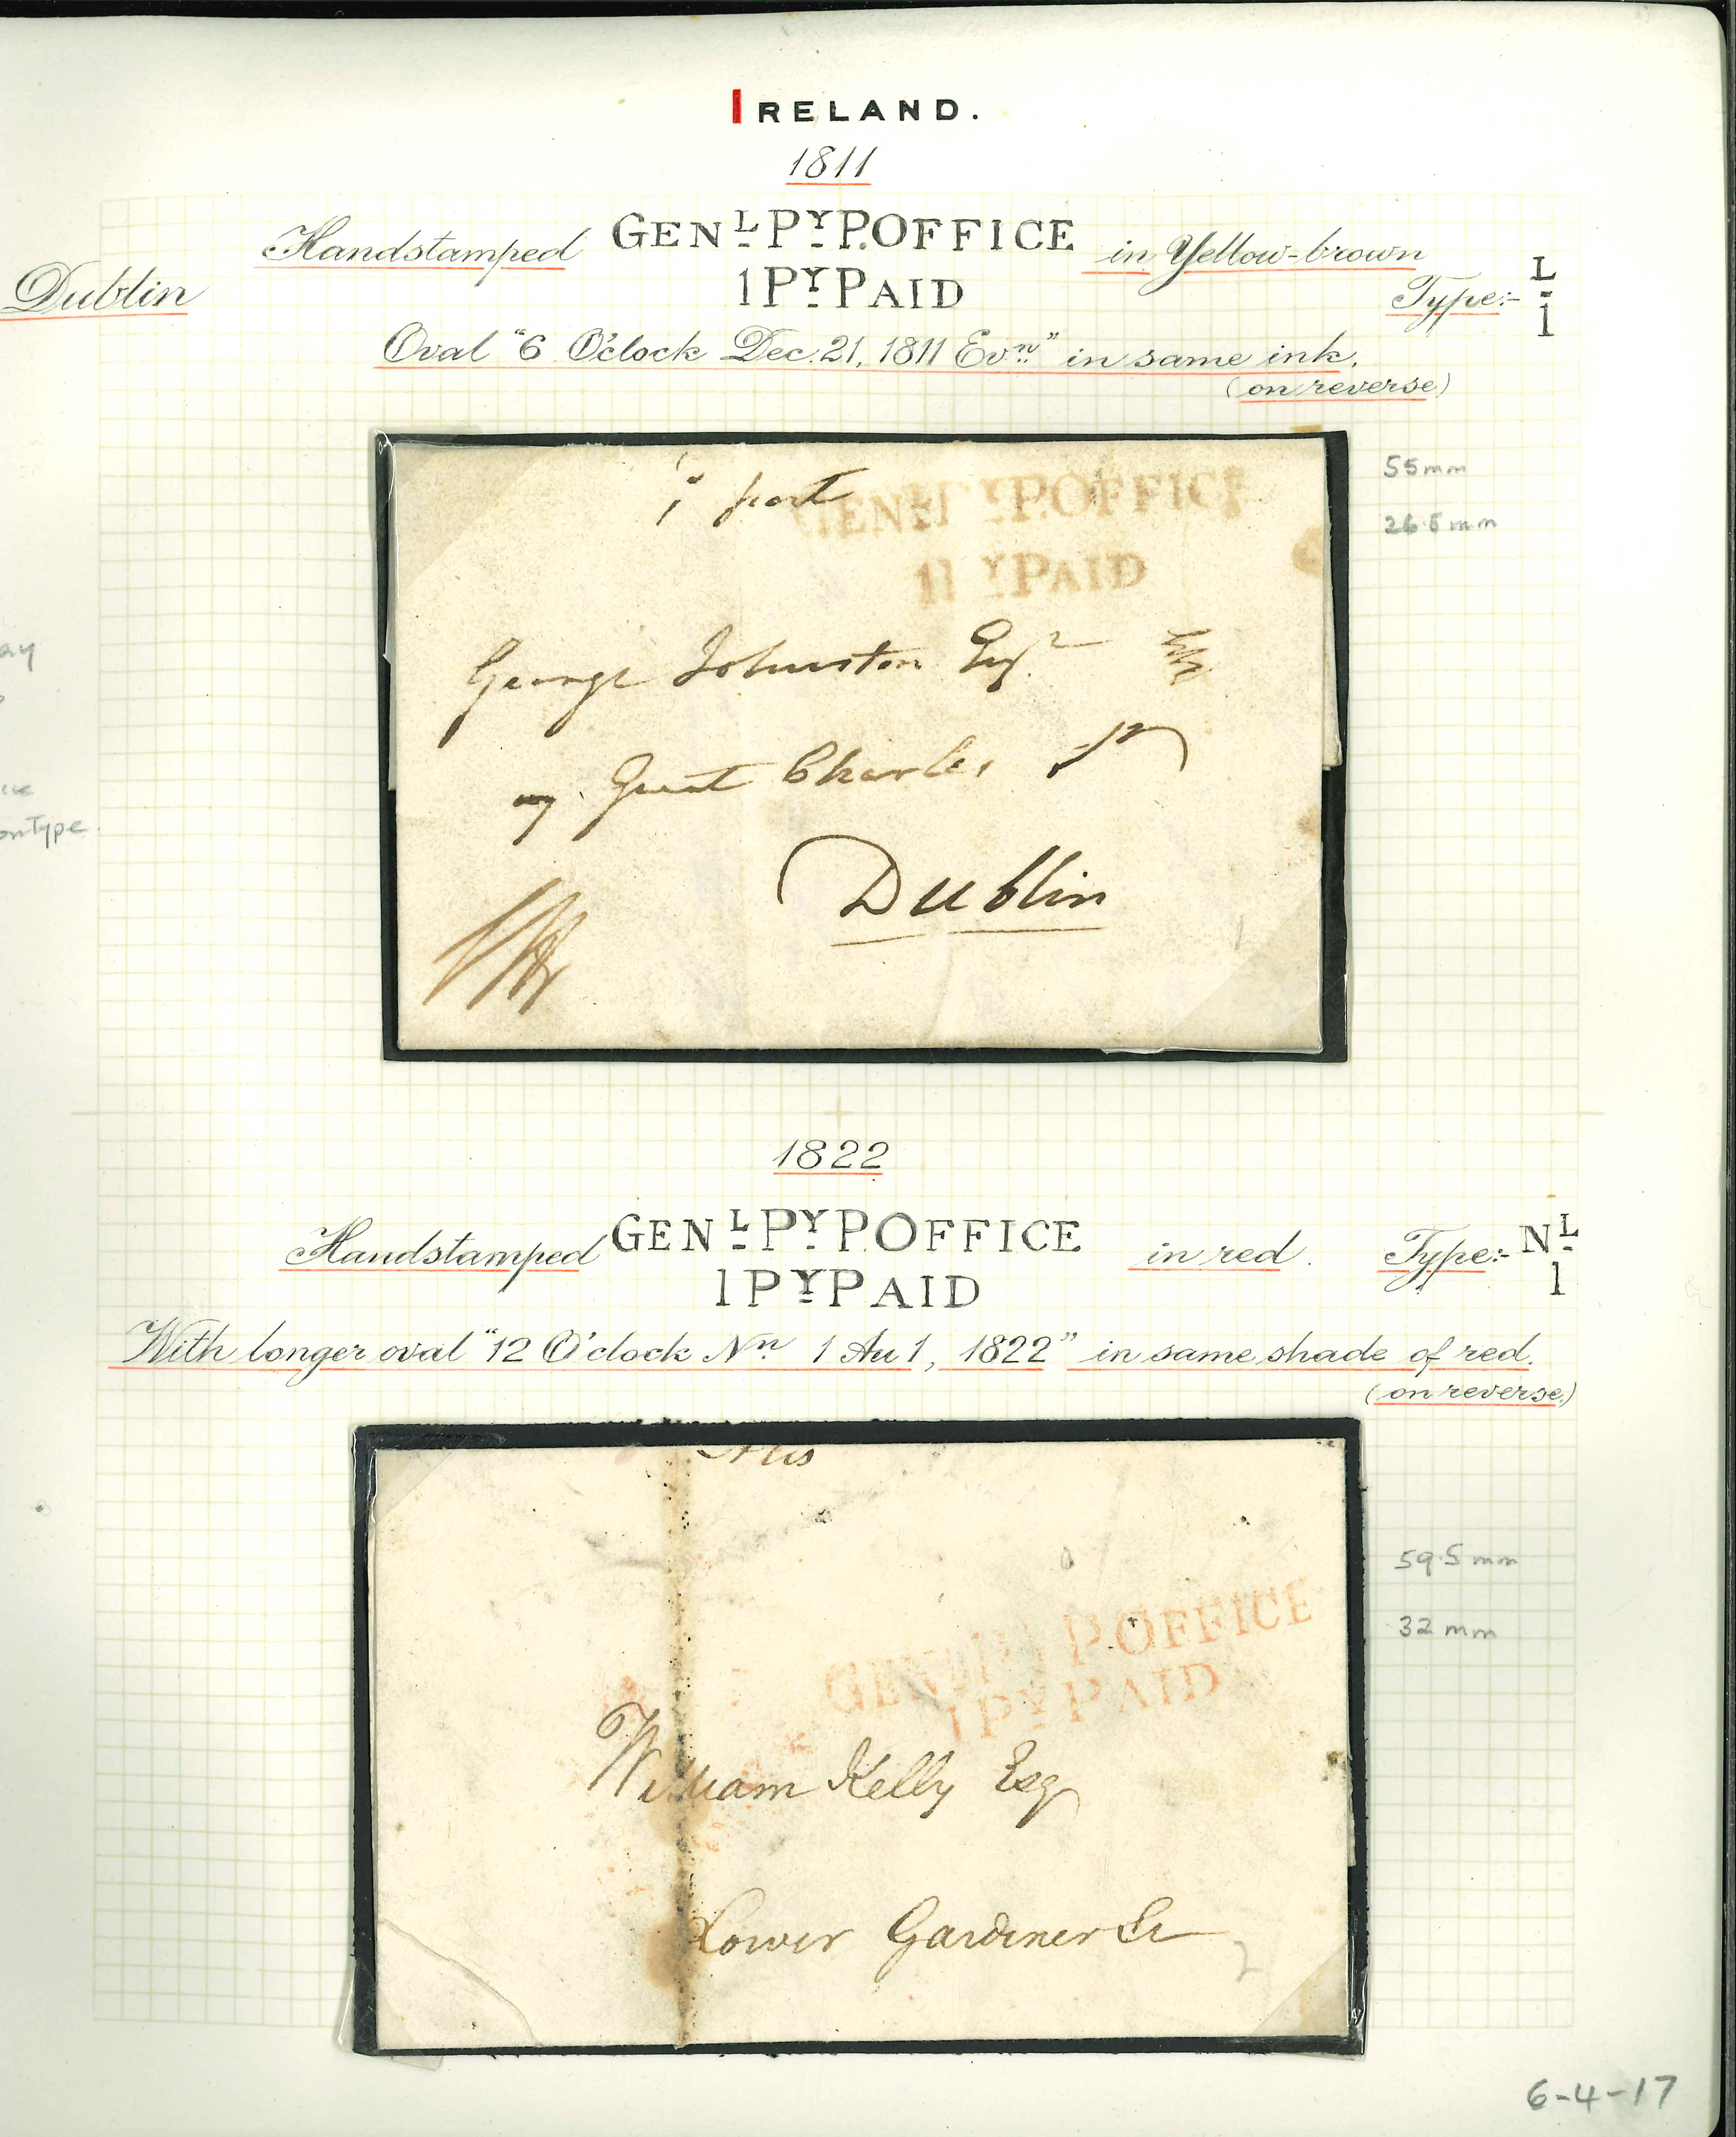 IRELAND.
1811
Handstamped GENL PY P.OFFICE in Yellow-brown
1 PY PAID
Type:- L
1
Dublin
Oval "6 O'clock Dec. 21, 1811 Evn" in same ink.
(on reverse)
55mm
26.5mm
post
GENL PY P.OFFICE
1 PY PAID
George Johnston Esqr
7 Great Charles St
Dublin
ay
onType.
1822
Handstamped GENL PY P.OFFICE in red. Type:- NL
1 PY PAID
1
With longer oval "12 O'clock Nn 1 Au 1, 1822" in same shade of red.
(on reverse.)
59.5mm
32 mm
GENL PY P.OFFICE
1 PY PAID
William Kelly Esq
Lower Gardiner St
2
6-4-17